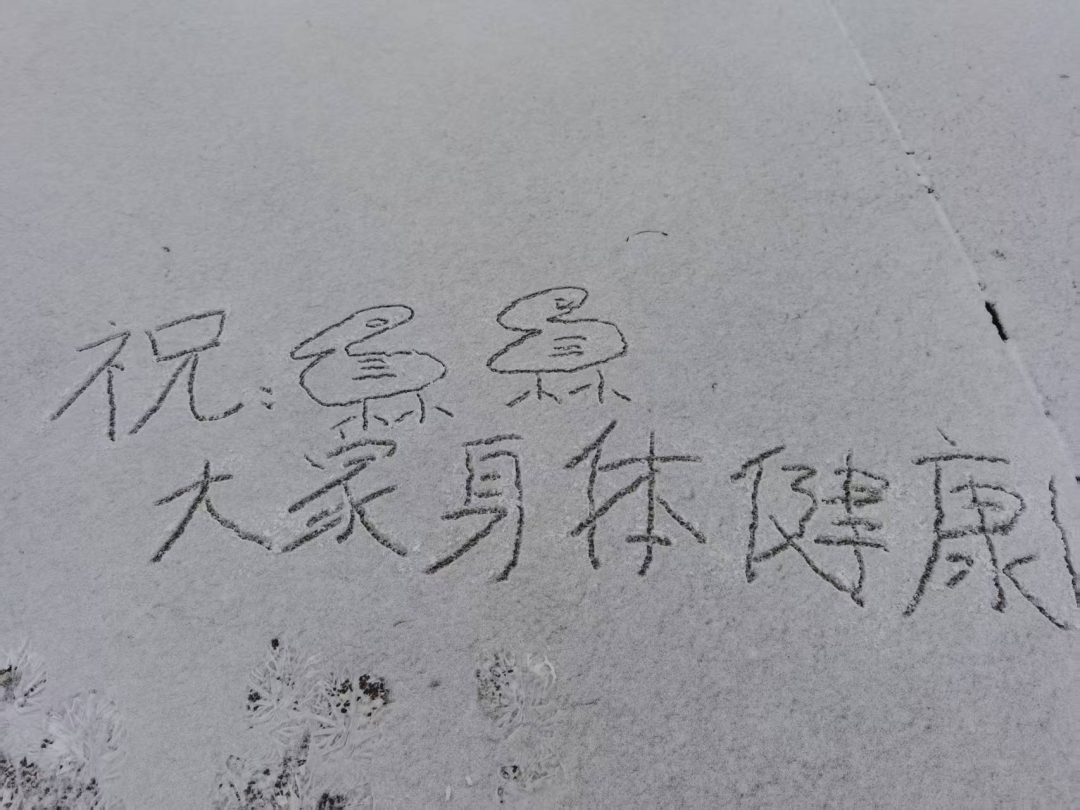 祝:
大家身体健康